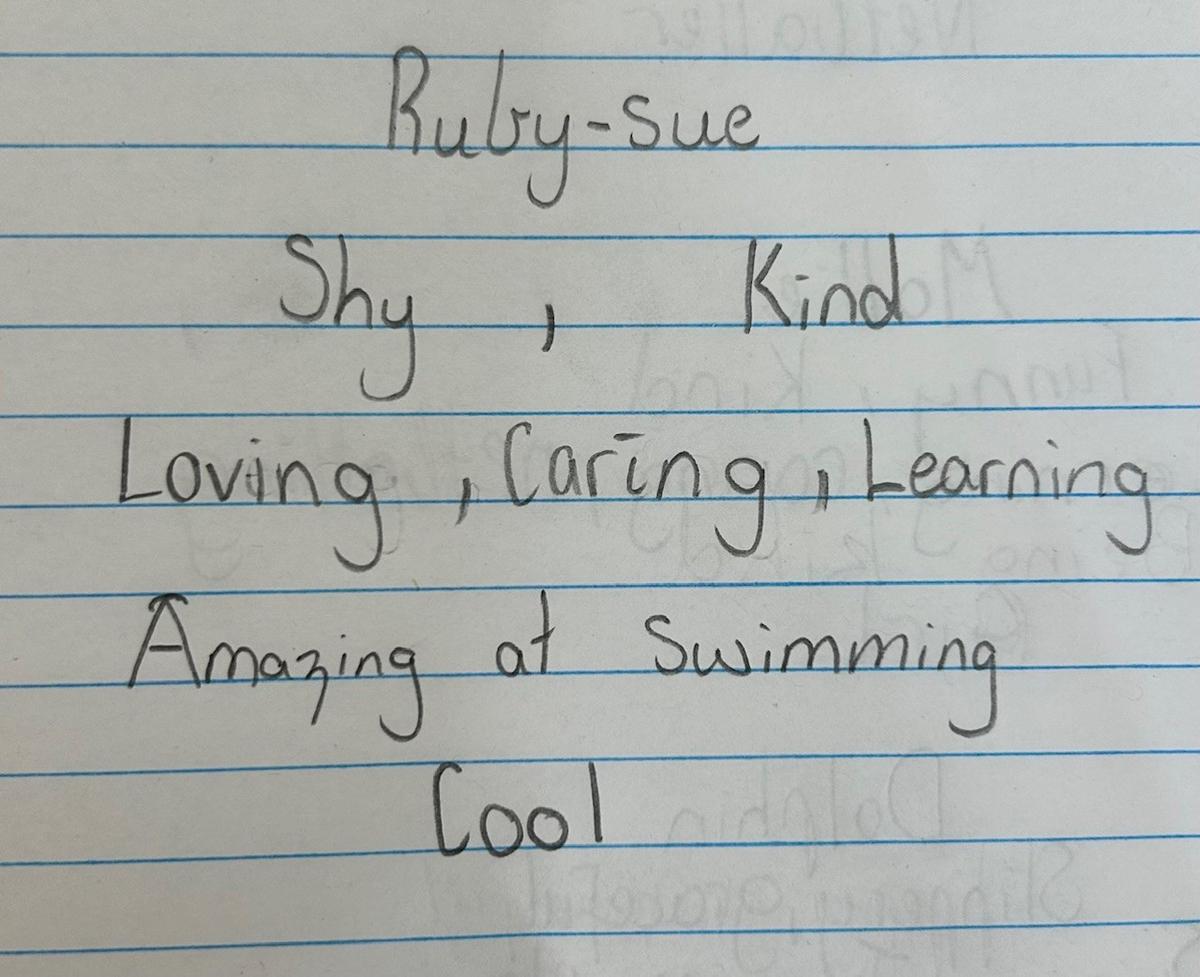 Ruby-sue
Shy , Kind
Loving , Caring , Learning
Amazing at swimming
Cool